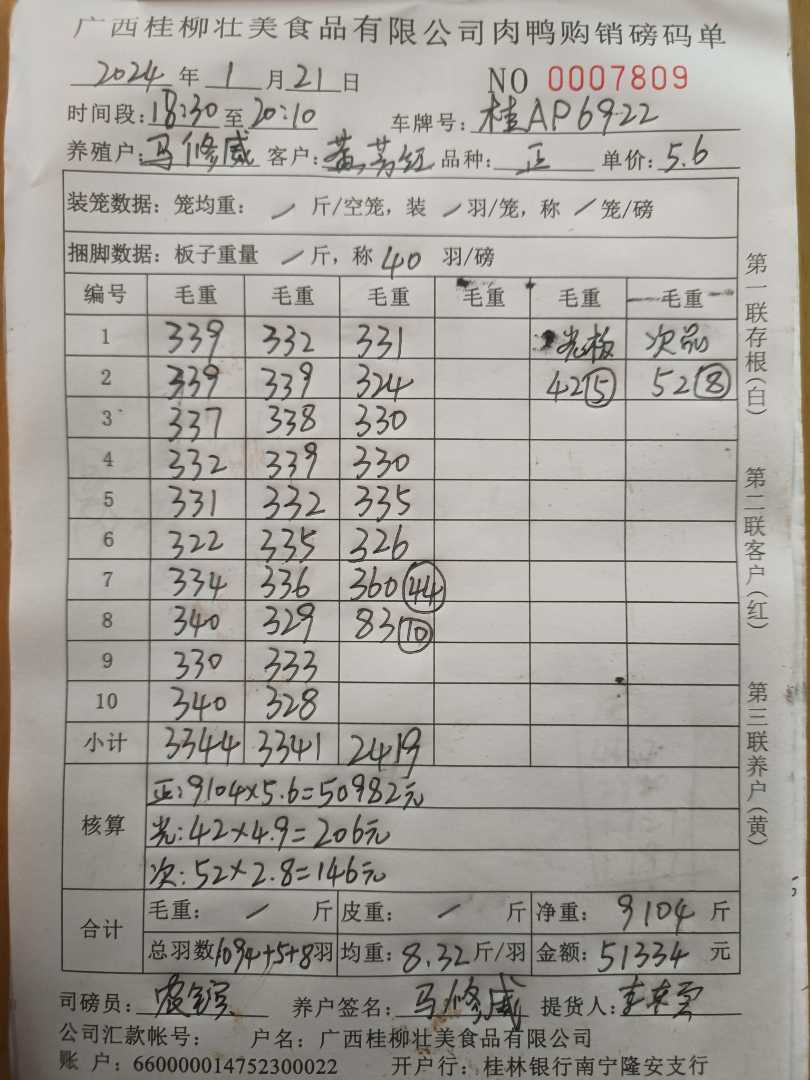 广西桂柳壮美食品有限公司肉鸭购销磅码单
2024 年 1 月 21 日 NO 0007809
时间段:18:30 至 20:10 车牌号: 桂AP6922
养殖户: 马修威 客户: 黄 红 品种: 正 单价: 5.6
装笼数据: 笼均重: / 斤/空笼, 装 / 羽/笼, 称 / 笼/磅
捆脚数据: 板子重量 / 斤, 称 40 羽/磅
编号 毛重 毛重 毛重 毛重 毛重 毛重
1 339 332 331 光板 次品
2 339 339 324 42⑤ 52⑧
3 337 338 330
4 332 339 330
5 331 332 335
6 322 335 326
7 334 336 360㊹
8 340 329 83⑩
9 330 333
10 340 328
小计 3344 3341 2419
核算
正:9104×5.6=50982元
光:42×4.9=206元
次:52×2.8=146元
合计 毛重: / 斤 皮重: / 斤 净重: 9104 斤
总羽数1094+5+8羽 均重: 8.32斤/羽 金额: 51334 元
司磅员: 养户签名: 马修威 提货人:
公司汇款帐号: 户名: 广西桂柳壮美食品有限公司
账 户: 660000014752300022 开户行: 桂林银行南宁隆安支行
第一联存根(白)
第二联客户(红)
第三联养户(黄)